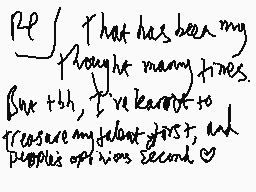 Re/ That has been my
thought many times.
But tbh, I've learnt to
treasure my talent first, and
people's opinions second ♡